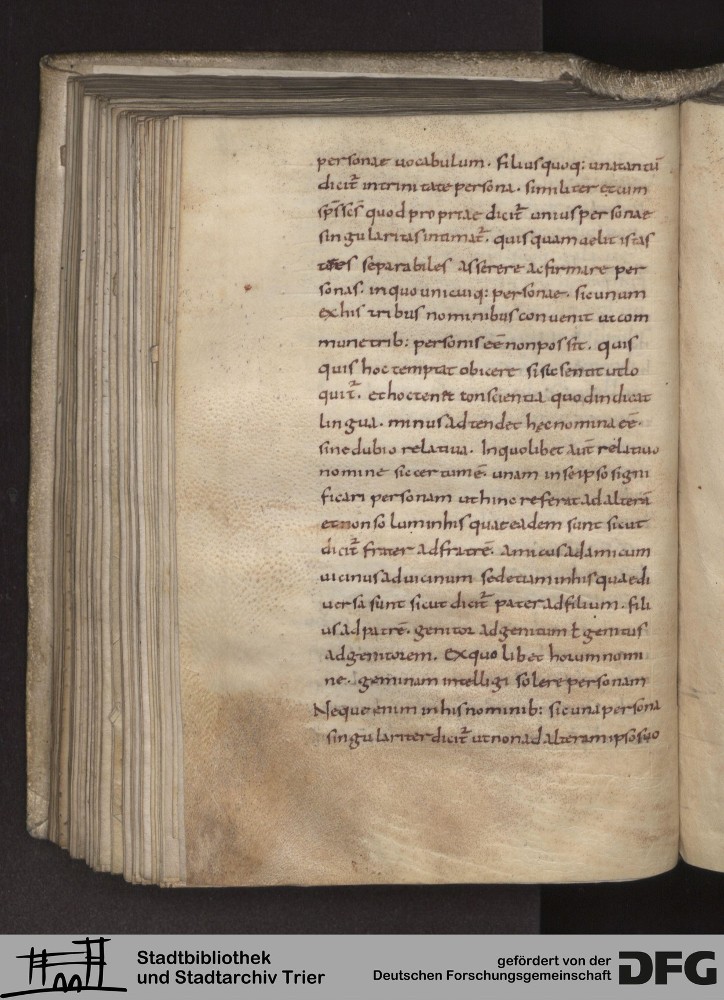 personae uocabulum. filiusquoq: unatantū
dicit̄ intrinitate persona. similiter etcum
sp̄sscs̄ quod propriae dicit̄ unius personae
singularitas intimat̄. quisquam uelit istas
tres separabiles asserere acfirmare per
sonas. inquo unicuiq: personae. sicunum
exhis tribus nominibus conuenit utcom
mune trib: personis eē nonpossit. quis
quis hoc temptat obicere si sic sentit utlo
quit̄. et hoc tenet conscientia quod indicat
lingua. minus adtendet hęc nomina eē.
sine dubio relatiua. In quolibet aut̄ relatiuo
nomine sic certumē. unam in se ipso signi
ficari personam ut hinc referat ad alterā
et non solum in his quae eadem sunt sicut
dicit̄ frater ad fratrē. amicus ad amicum
uicinus ad uicinum sed etiam in his quae di
uersa sunt sicut dicit̄ pater ad filium. fili
us ad patrē. genitor ad genitum ł genitus
ad genitorem. Ex quo libet horum nomi
ne. geminam intelligi solere personam
Neque enim in his nominib: sic una persona
singulariter dicit̄ ut non ad alteram ipso suo
Stadtbibliothek
und Stadtarchiv Trier
gefördert von der
Deutschen Forschungsgemeinschaft
DFG